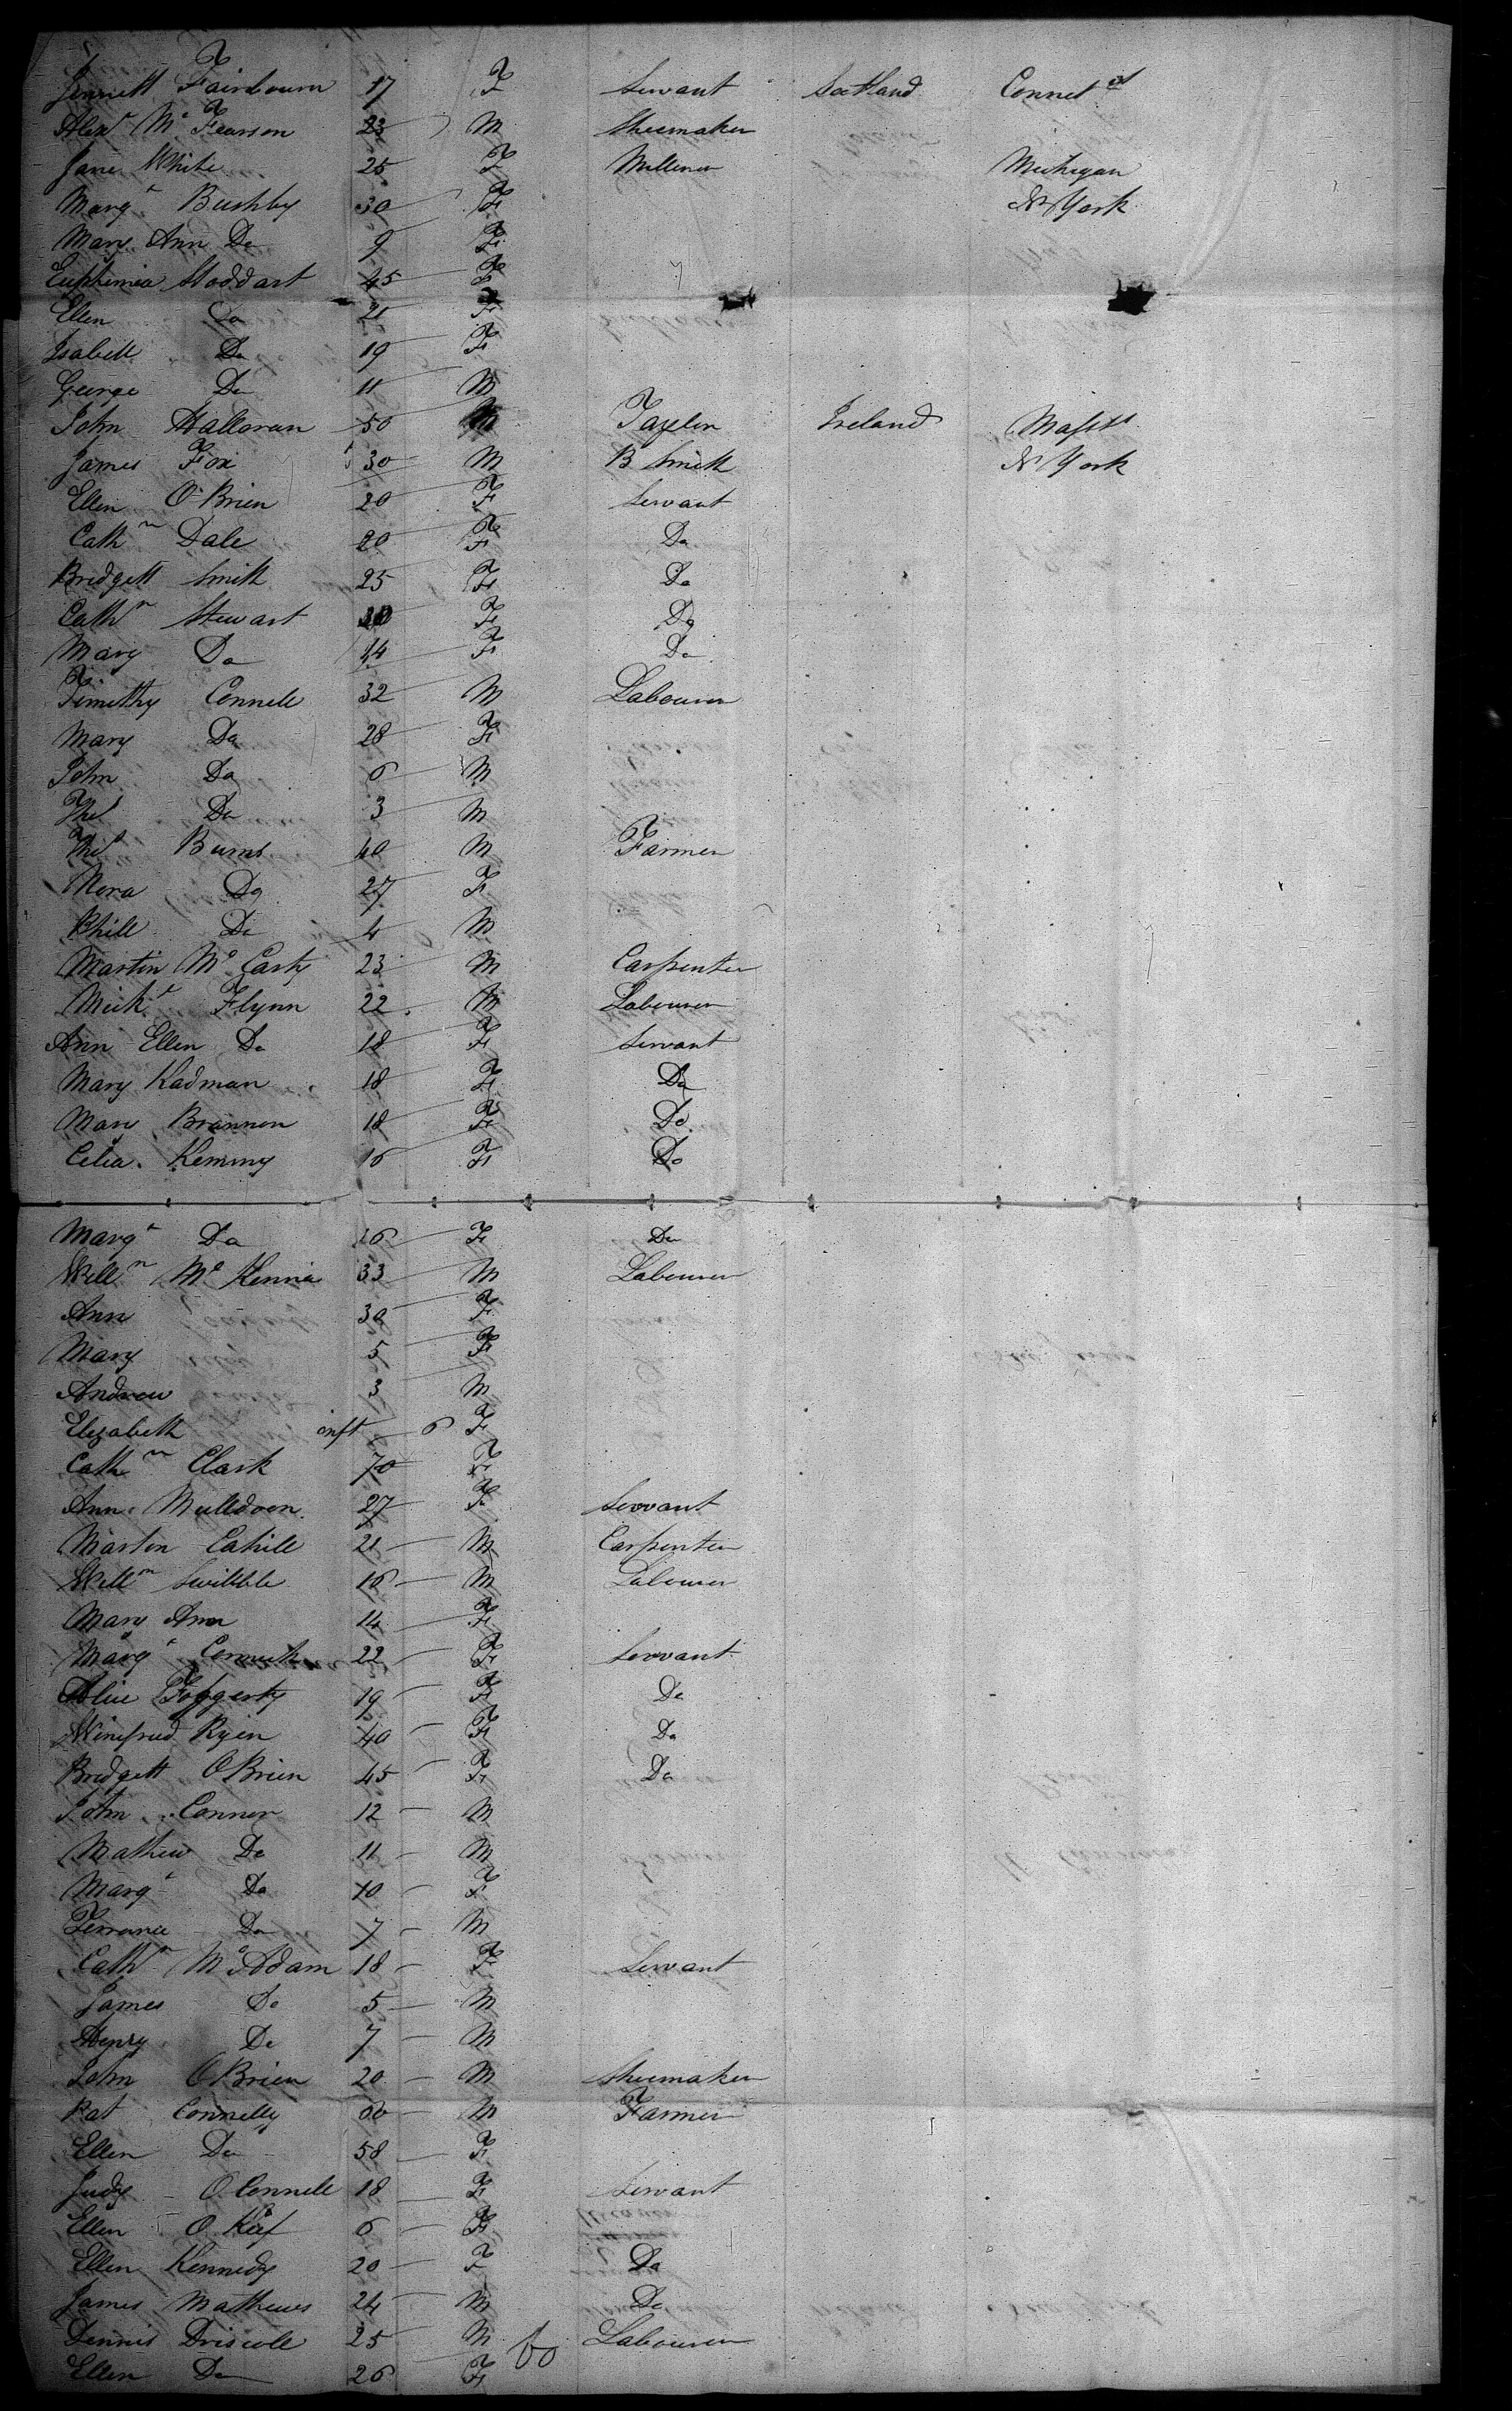 Jennett Fairbourn 17 F Servant Scotland Connct
Alexr Mc Fearson 23 M Shoemaker
Jane White 25 F Milliner Michigan
Margt Bushby 30 F N York
Mary Ann Do 9 F
Euphemia Stoddart 45 F
Ellen Do 21 F
Isabell Do 19 F
George Do 11 M
John Halloran 50 M Taylor Ireland Massts
James Fox 30 M B Smith N York
Ellen O'Brien 20 F Servant
Cathn Dale 20 F Do
Bridgett Smith 25 F Do
Cathn Stewart 30 F Do
Mary Do 44 F Do
Timothy Connell 32 M Labourer
Mary Do 28 F
John Do 6 M
Thos Do 3 M
Thos Burns 40 M Farmer
Nora Do 27 F
Phill Do 4 M
Martin Mc Carty 23 M Carpenter
Michl Flynn 22 M Labourer
Ann Ellen Do 18 F Servant
Mary Kadman 18 F Do
Mary Brannon 18 F Do
Celia Keming 16 F Do
Margt Do 26 F Do
Willm Mc Kenna 33 M Labourer
Ann 30 F
Mary 5 F
Andrew 3 M
Elizabeth inft 6 F
Cathn Clark 70 F
Ann Mulldoon 27 F Servant
Martin Cahill 21 M Carpenter
Willm Scribble 16 M Labourer
Mary Ann 14 F
Margt 22 F Servant
Alice Foggerty 19 F Do
Winefred Ryen 40 F Do
Bridgett O Brien 45 F Do
John Conner 12 M
Mathew Do 11 M
Margt Do 10 F
Terrance Do 7 M
Cathn Mc Adam 18 F Servant
James Do 5 M
Henry Do 7 M
John O Brien 20 M Shoemaker
Pat Connelly 60 M Farmer
Ellen Do 58 F
Judy O Connell 18 F Servant
Ellen O Keef 6 F
Ellen Kennedy 20 F Do
James Mathews 24 M Do
Dennis Driscoll 25 M Labourer
Ellen Do 26 F 60